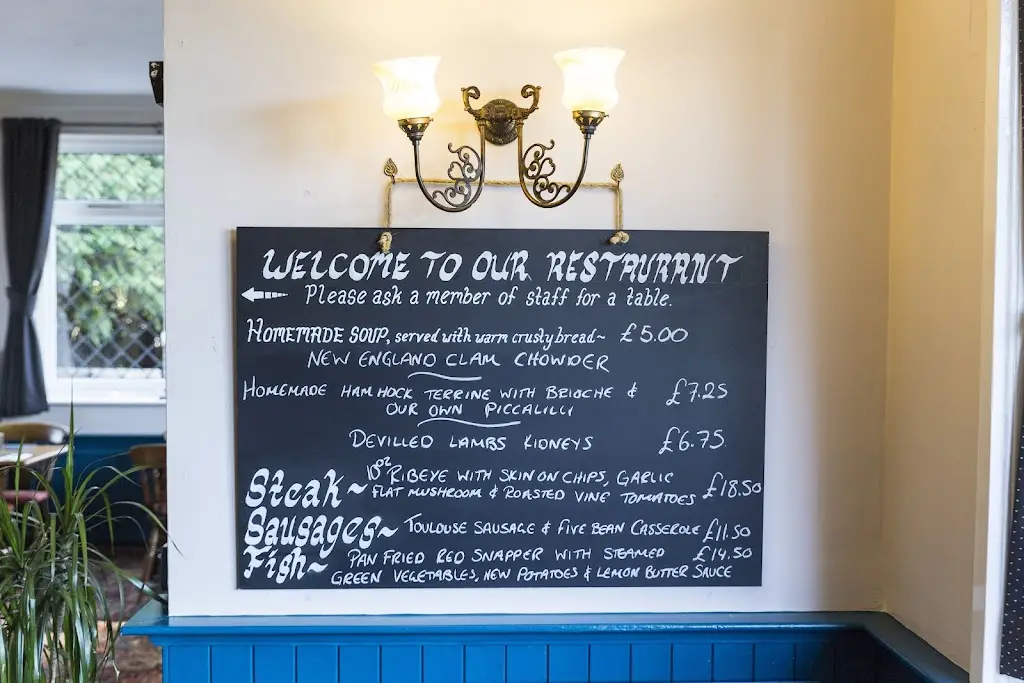 WELCOME TO OUR RESTAURANT
Please ask a member of staff for a table.
HOMEMADE SOUP, served with warm crusty bread~ £5.00
NEW ENGLAND CLAM CHOWDER
HOMEMADE HAM HOCK TERRINE WITH BRIOCHE & £7.25
OUR OWN PICCALILLI
DEVILLED LAMBS KIDNEYS £6.75
Steak~ 10oz RIBEYE WITH SKIN ON CHIPS, GARLIC
FLAT MUSHROOM & ROASTED VINE TOMATOES £18.50
Sausages~ TOULOUSE SAUSAGE & FIVE BEAN CASSEROLE £11.50
Fish~ PAN FRIED RED SNAPPER WITH STEAMED £14.50
GREEN VEGETABLES, NEW POTATOES & LEMON BUTTER SAUCE